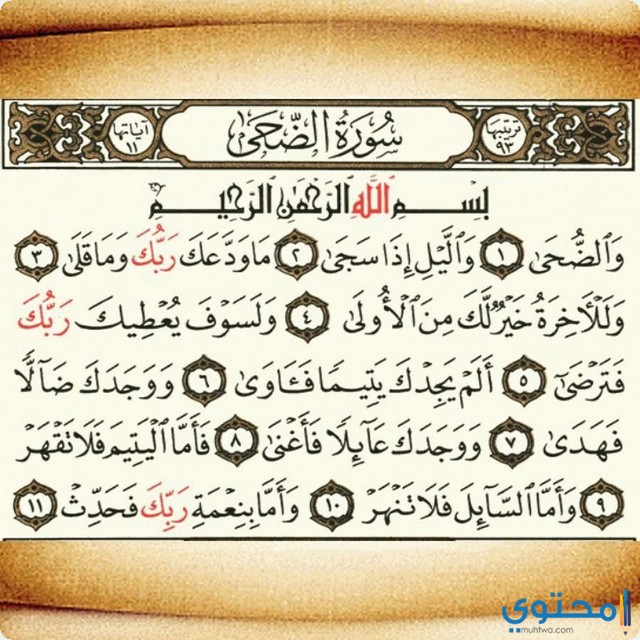 ترتيبها ٩٣ سورة الضحى آياتها ١١
بسم الله الرحمن الرحيم
وَٱلضُّحَىٰ ١ وَٱلَّيۡلِ إِذَا سَجَىٰ ٢ مَا وَدَّعَكَ رَبُّكَ وَمَا قَلَىٰ ٣
وَلَلۡأٓخِرَةُ خَيۡرٞ لَّكَ مِنَ ٱلۡأُولَىٰ ٤ وَلَسَوۡفَ يُعۡطِيكَ رَبُّكَ
فَتَرۡضَىٰٓ ٥ أَلَمۡ يَجِدۡكَ يَتِيمٗا فَـَٔاوَىٰ ٦ وَوَجَدَكَ ضَآلّٗا
فَهَدَىٰ ٧ وَوَجَدَكَ عَآئِلٗا فَأَغۡنَىٰ ٨ فَأَمَّا ٱلۡيَتِيمَ فَلَا تَقۡهَرۡ
٩ وَأَمَّا ٱلسَّآئِلَ فَلَا تَنۡهَرۡ ١٠ وَأَمَّا بِنِعۡمَةِ رَبِّكَ فَحَدِّثۡ ١١
محتوي
muhtwa.com